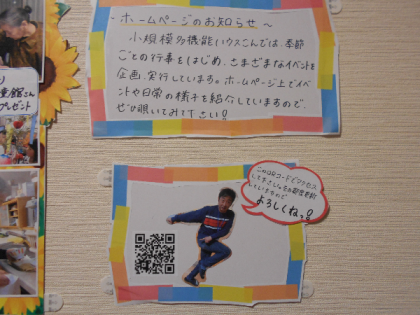 ～ホームページのお知らせ～
小規模多機能ハウスこんでは、季節
ごとの行事をはじめ、さまざまなイベントを
企画、実行しています。ホームページ上でイベ
ントや日常の様子を紹介していますので、
ぜひ覗いてみて下さい!
り
童館さん
プレゼント
このQRコードでアクセス
して下さい。
していますので
よろしくねっ!